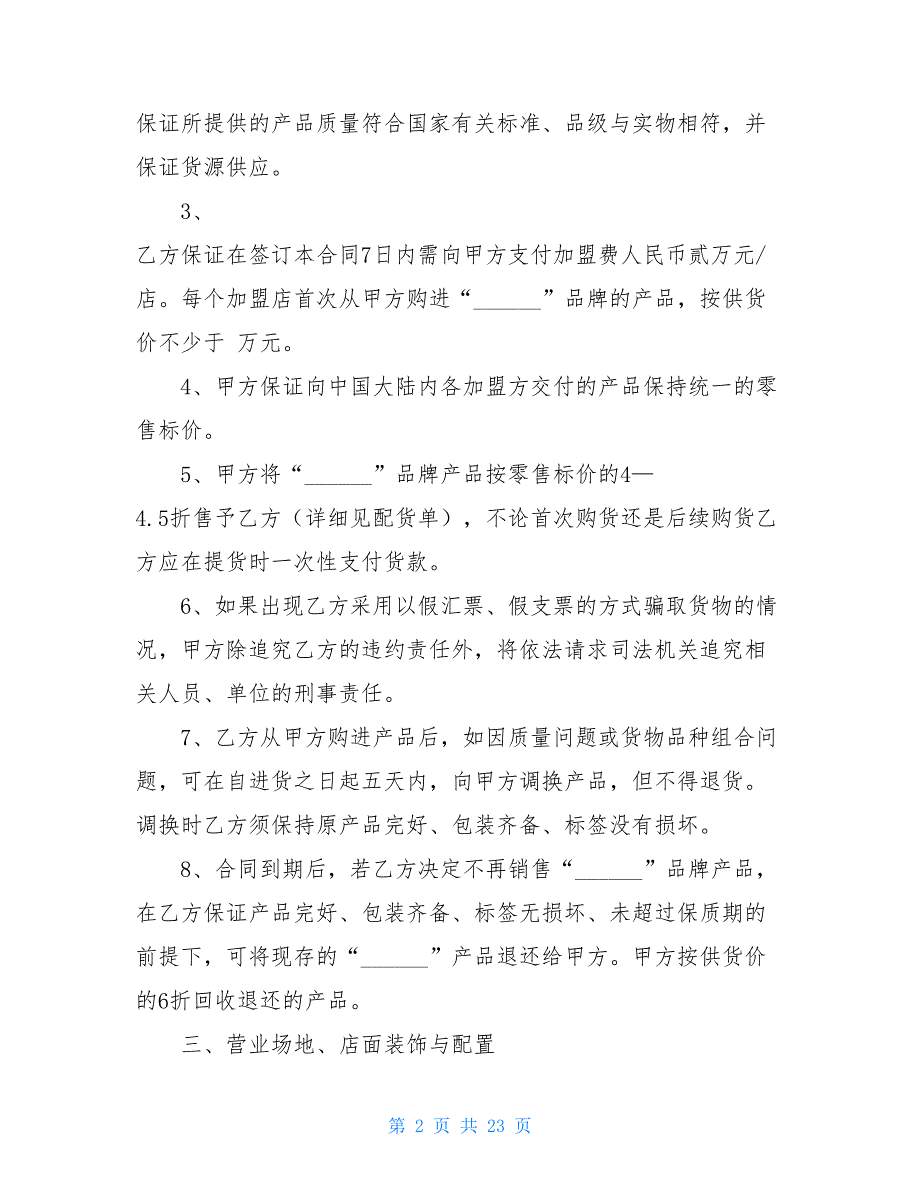 保证所提供的产品质量符合国家有关标准、品级与实物相符，并
保证货源供应。
3、
乙方保证在签订本合同7日内需向甲方支付加盟费人民币贰万元/
店。每个加盟店首次从甲方购进“______”品牌的产品，按供货
价不少于 万元。
4、甲方保证向中国大陆内各加盟方交付的产品保持统一的零
售标价。
5、甲方将“______”品牌产品按零售标价的4—
4.5折售予乙方（详细见配货单），不论首次购货还是后续购货乙
方应在提货时一次性支付货款。
6、如果出现乙方采用以假汇票、假支票的方式骗取货物的情
况，甲方除追究乙方的违约责任外，将依法请求司法机关追究相
关人员、单位的刑事责任。
7、乙方从甲方购进产品后，如因质量问题或货物品种组合问
题，可在自进货之日起五天内，向甲方调换产品，但不得退货。
调换时乙方须保持原产品完好、包装齐备、标签没有损坏。
8、合同到期后，若乙方决定不再销售“______”品牌产品，
在乙方保证产品完好、包装齐备、标签无损坏、未超过保质期的
前提下，可将现存的“______”产品退还给甲方。甲方按供货价
的6折回收退还的产品。
三、营业场地、店面装饰与配置
第 2 页 共 23 页